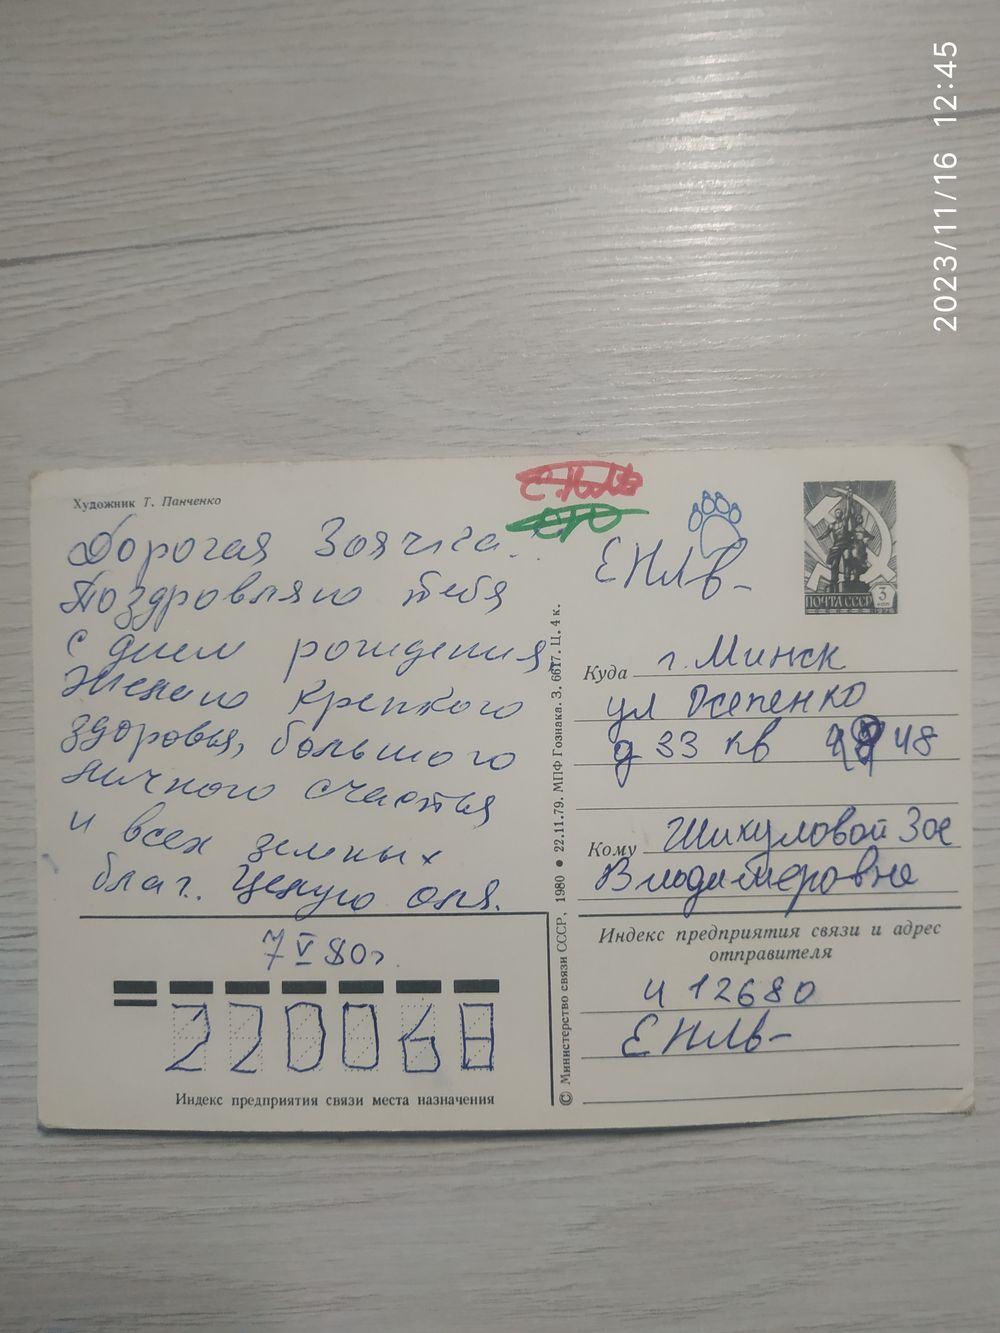 2023/11/16 12:45
Художник Т. Панченко
Дорогая Зоячка.
Поздровляю тебя
с днем рождения,
Желаю крепкого
здоровья, большого
личного счастья
и всех земных
благ. Целую Оля.
7 V 80г.
220068
Индекс предприятия связи места назначения
© Министерство связи СССР, 1980 • 22.11.79. МПФ Гознака. З. 6617. Ц. 4 к.
ЕНЛв-
ПОЧТА СССР
3 коп
1976
Куда г. Минск
ул Осепенко
д 33 кв 48
Кому Шикуловой Зое
Владимеровне
Индекс предприятия связи и адрес
отправителя
и 12680
ЕНЛв-